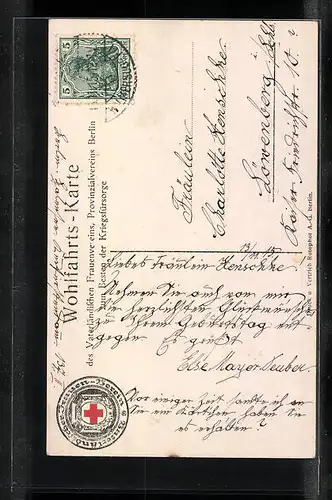 Wohlfahrts-Karte
des Vaterländischen Frauenvereins, Provinzialvereins Berlin
zum Besten der Kriegsfürsorge
5 5
Fräulein
Charlotte Henschke
Löwenberg
Kaiser Friedrichstr. 10.
Druck u. Vertrieb A.-G. Berlin.
Liebes Fräulein Henschke
Nehmen Sie auch von mir
die herzlichsten Glückwünsche
zu Ihrem Geburtstag ent
gegen. Es grüßt
Else Mayer-Neuber.
Vor einiger Zeit sandte ich an
Sie ein Kärtchen, haben Sie
es erhalten?